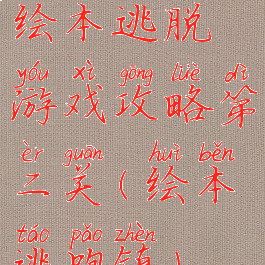 绘本逃脱
yóu xì gōng lüè dì
游戏攻略第
èr guān huì běn
二关（绘本
táo pǎo zhèn
逃跑镇）